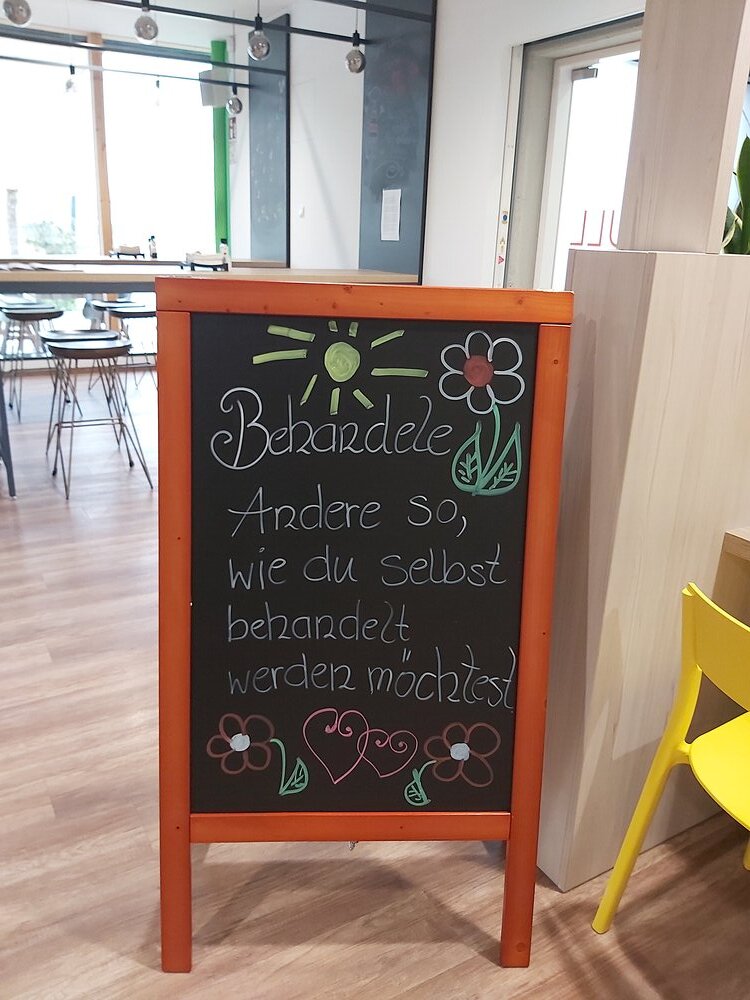 Behandele
Andere so,
wie du selbst
behandelt
werden möchtest